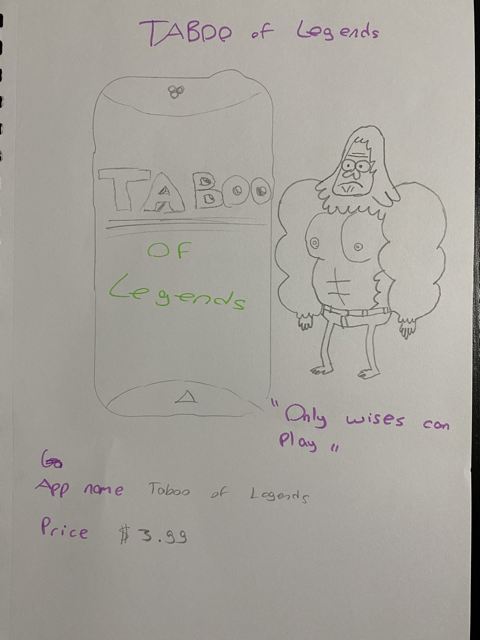 TABOO of Legends
TABOO
OF
Legends
"Only wises can
Play "
App name Taboo of Legends
Price $3.99